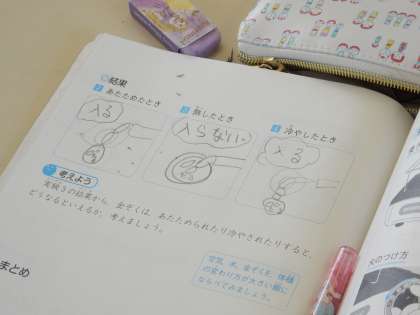 結果
2 あたためたとき
3 熱したとき
4 冷やしたとき
入る
入らない
入る
考えよう
実験3の結果から、金ぞくは、あたためられたり冷やされたりすると、
どうなるといえるか、考えましょう。
空気、水、金ぞくを、体積
の変わり方が大きい順に
ならべてみましょう。
まとめ
火のつけ方